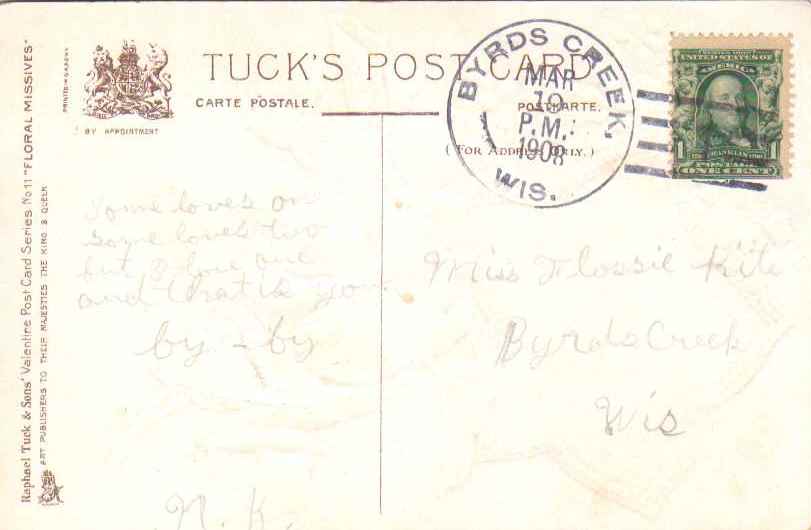 TUCK'S POST CARD
CARTE POSTALE.
POSTKARTE.
(FOR ADDRESS ONLY.)
BY APPOINTMENT
Raphael Tuck & Sons' Valentine Post Card Series No 11 "FLORAL MISSIVES"
ART PUBLISHERS TO THEIR MAJESTIES THE KING & QUEEN
BYRDS CREEK,
MAR
10
P.M.
1908
WIS.
UNITED STATES OF
AMERICA
1 FRANKLIN 1
POSTAGE
ONE CENT
Some loves on
some loves two
but I love one
and that is you
by - by
N. K.
Miss Flossie Kite
Byrds Creek
Wis